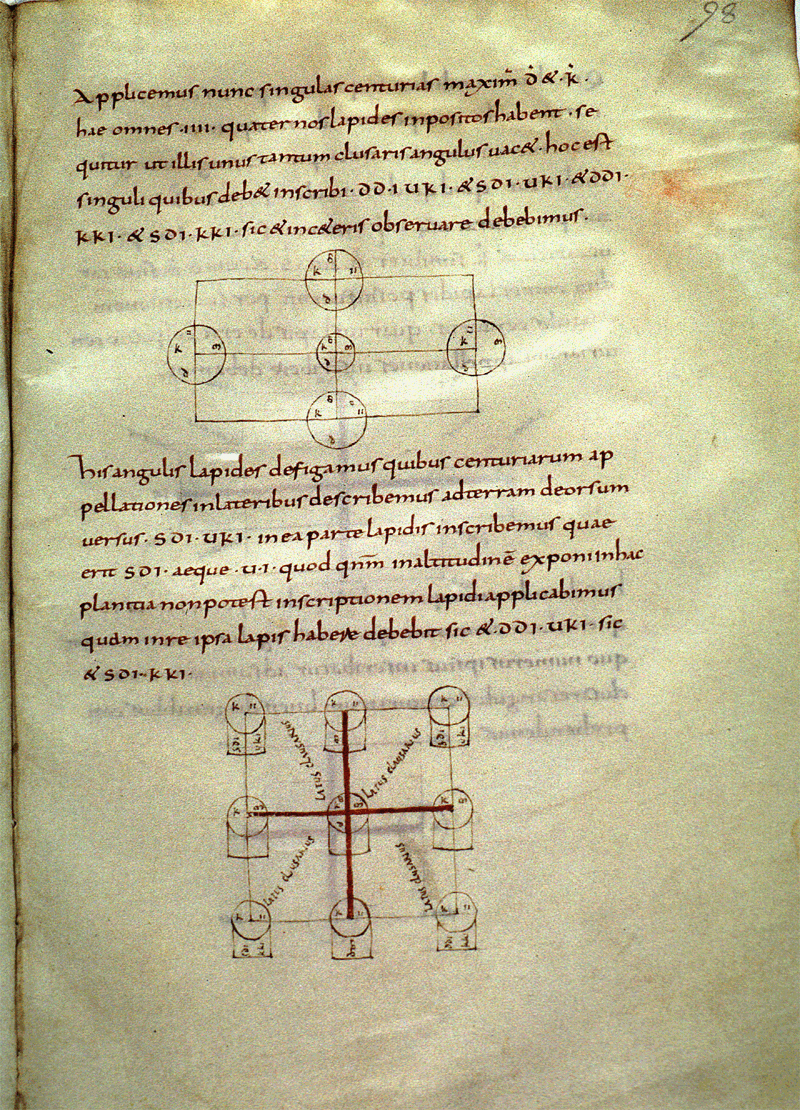 98
Applicemus nunc singulas centurias maxim̅ ḋ & k̇.
hae omnes ·IIII· quaternos lapides inpositos habent · se
quitur ut illis unus tantum clusaris angulus uac& · hoc est
singuli quibus deb& inscribi · DD·I UKI · & SDI · UKI · & DDI ·
KKI · & SDI · KKI · sic & inc&eris observare debebimus ·
k
d
k
k
k
d
k
d
his angulis lapides defigamus quibus centuriarum ap
pellationes in lateribus describemus ad terram deorsum
versus · SDI · UKI · in ea parte lapidis inscribemus quae
erit SDI · aeque · U·I · quod qnm̅ in altitudinē exponi in hac
planitia non potest inscriptionem lapidi applicabimus
quam in re ipsa lapis habere debebit sic & · DDI · UKI · sic
& SDI · KKI ·
k
k
k
SDI UKI
SDI UKI
Latus clusaris
Latus clusarius
k
k
Latus clusarius
Latus clusarius
k
k
k